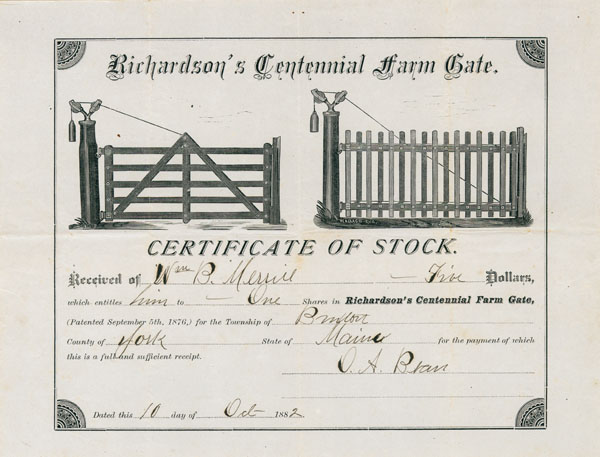 Richardson's Centennial Farm Gate.
CERTIFICATE OF STOCK.
Received of Wm B. Merrill — Five Dollars,
which entitles him to — One Shares in Richardson's Centennial Farm Gate,
(Patented September 5th, 1876,) for the Township of Buxton
County of York State of Maine for the payment of which
this is a full and sufficient receipt.
O. A. Bean
Dated this 10 day of Oct 1882